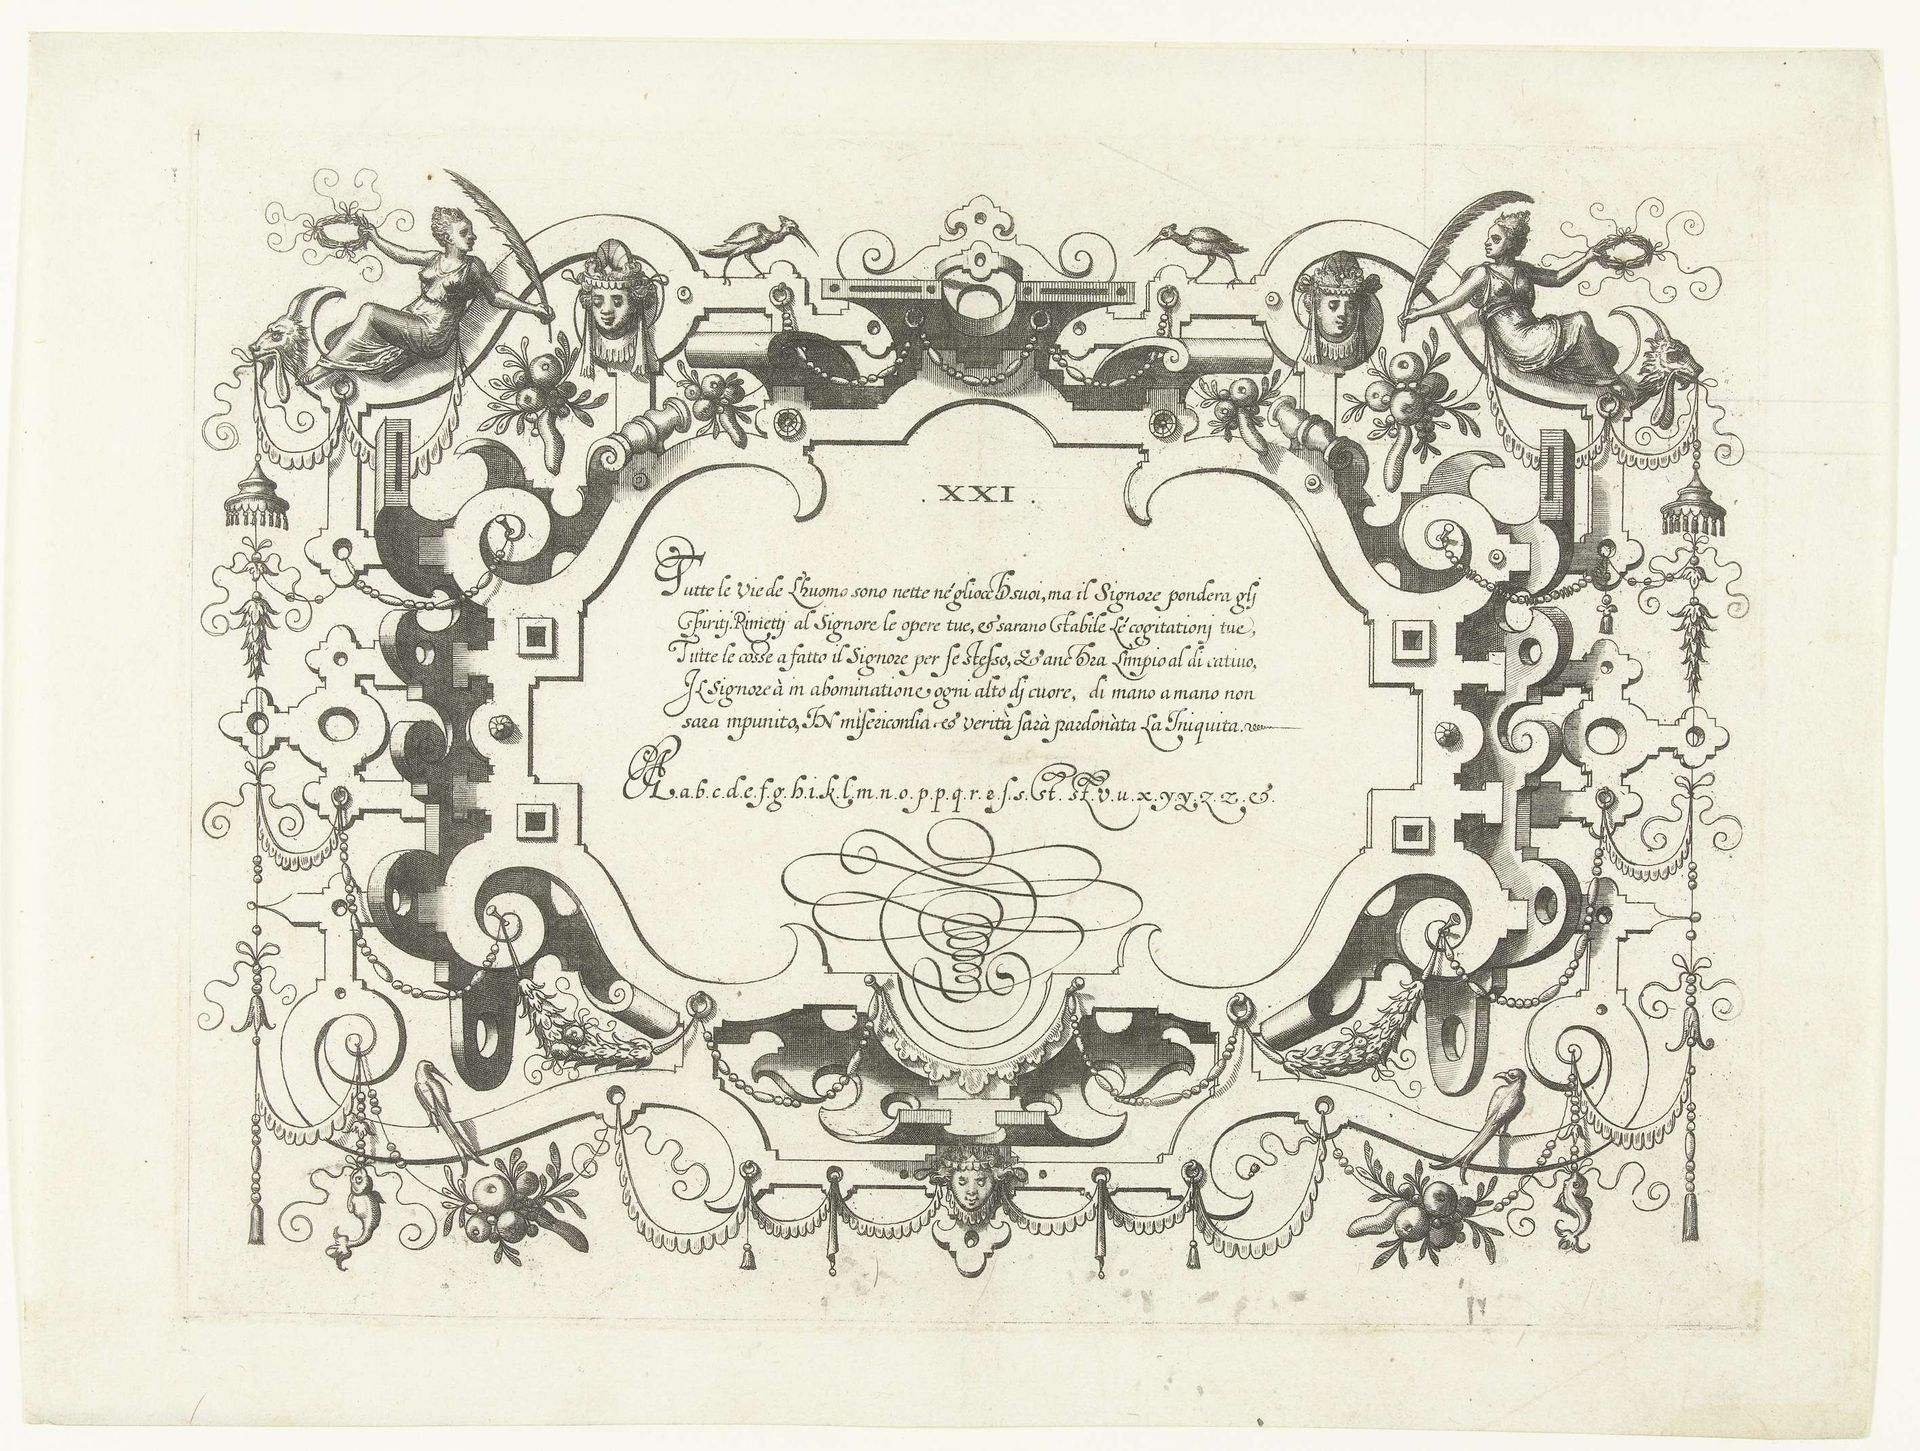 . XXI .
Tutte le vie de Lhuomo sono nette né gliocchi suoi, ma il Signore pondera glj
Spiritj. Rimettj al Signore le opere tue, & sarano stabile le cogitationj tue,
Tutte le cosse a fatto il Signore per se stesso, & anchra Limpio al di catiuo,
Il Signore à in abominatione ogni alto dj cuore, di mano a mano non
sara mpunito, IN misericordia & verità sarà pardonàta La Iniquita.
A.a.b.c.d.e.f.g.h.i.k.l.m.n.o.p.p.q.r.ſ.s.st.st.v.u.x.y.y.z.z.&.